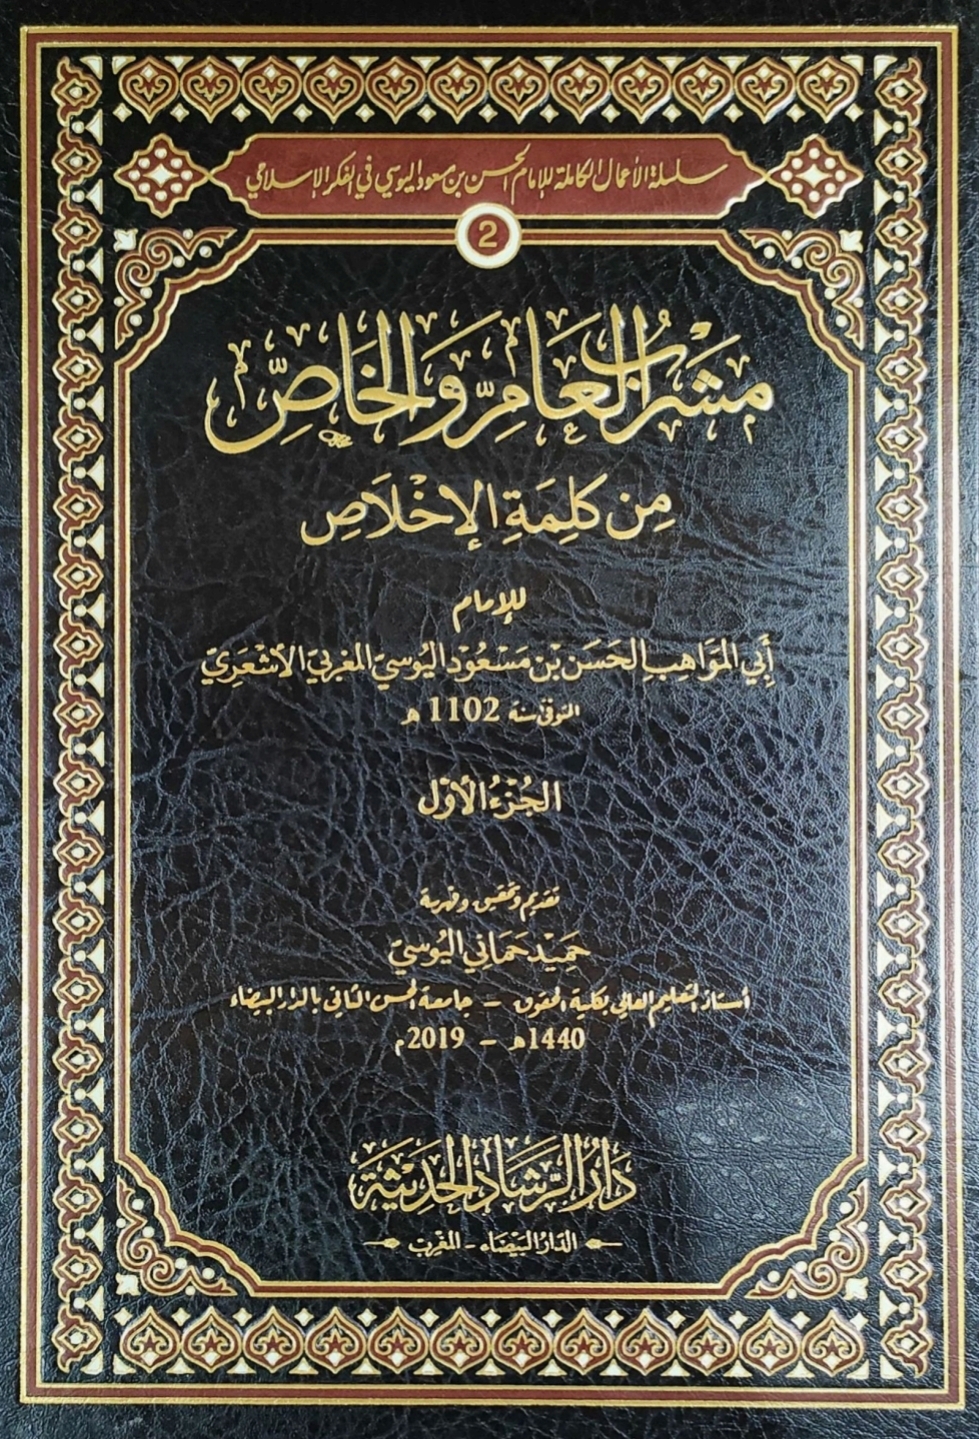 سلسلة الأعمال الكاملة للإمام الحسن بن مسعود اليوسي في الفكر الإسلامي
2
مَشْرَبُ العَامِّ وَالخَاصِّ
مِن كَلِمَةِ الإِخْلَاصِ
للإمام
أَبِي المَوَاهِبِ الحَسَن بْن مَسْعُود اليُوسِيّ المغربيّ الأَشْعَرِيّ
المتوفى سنة 1102 هـ
الجُزْءُ الأَوَّل
تقديم وتحقيق وفهرسة
حَمِيْد حَمَاني اليُوسِيّ
أستاذ التعليم العالي بكلية الحقوق - جامعة الحسن الثاني بالدار البيضاء
1440هـ - 2019م
دَارُ الرَّشَادِ الحَدِيْثَة
الدَّارُ البَيْضَاء - المَغْرِب